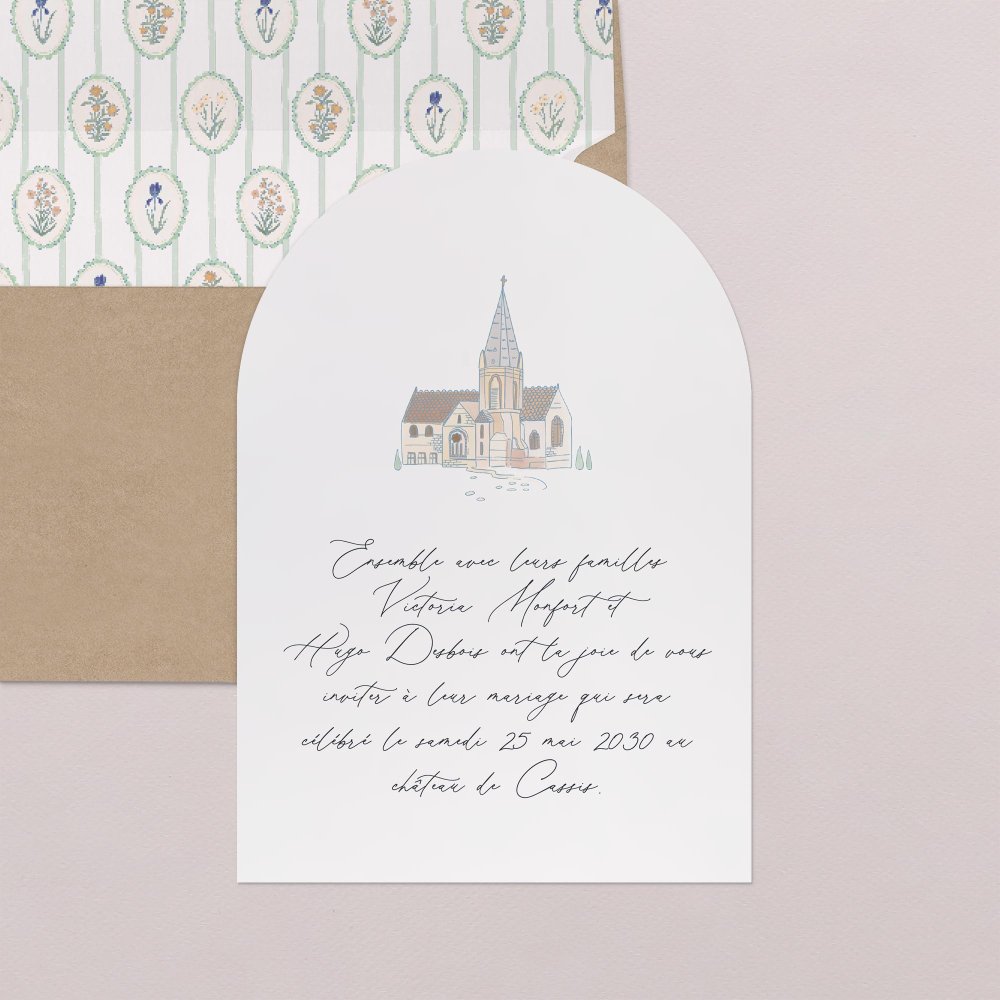 Ensemble avec leurs familles
Victoria Monfort et
Hugo Desbois ont la joie de vous
inviter à leur mariage qui sera
célébré le samedi 25 mai 2030 au
château de Cassis.